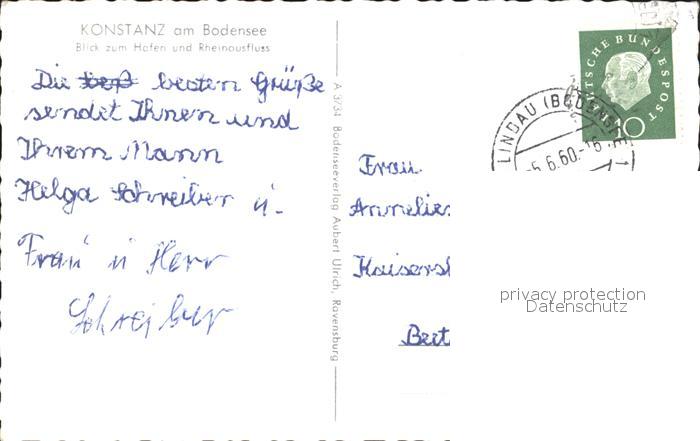 KONSTANZ am Bodensee
Blick zum Hafen und Rheinausfluss
Die besten Grüße
sendet Ihnen und
Ihrem Mann
Helga Schreiber u.
Frau u Herr
Schreiber
A 3734 Bodenseeverlag Aubert Ulrich, Ravensburg
DEUTSCHE BUNDESPOST
10
LINDAU (BODENSEE) 1
-5.6.60.-16
Frau
Annelies
Kaisers
privacy protection
Datenschutz